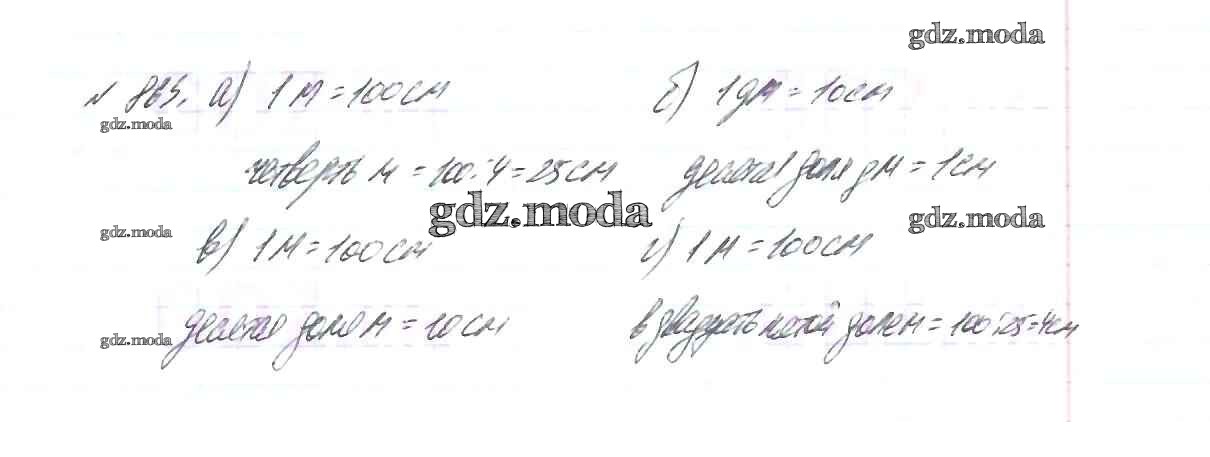 gdz.moda
№ 865. а) 1 м = 100 см б) 1 дм = 10 см
gdz.moda
четверть м = 100:4 = 25 см десятая доля дм = 1 см
gdz.moda
gdz.moda gdz.moda
в) 1 м = 100 см г) 1 м = 100 см
десятая доля м = 10 см в двадцать пятой доле м = 100:25 = 4 см
gdz.moda